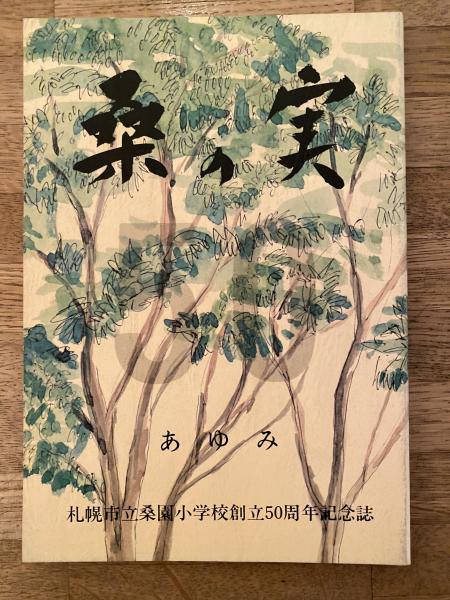 桑の実
50
あゆみ
札幌市立桑園小学校創立50周年記念誌